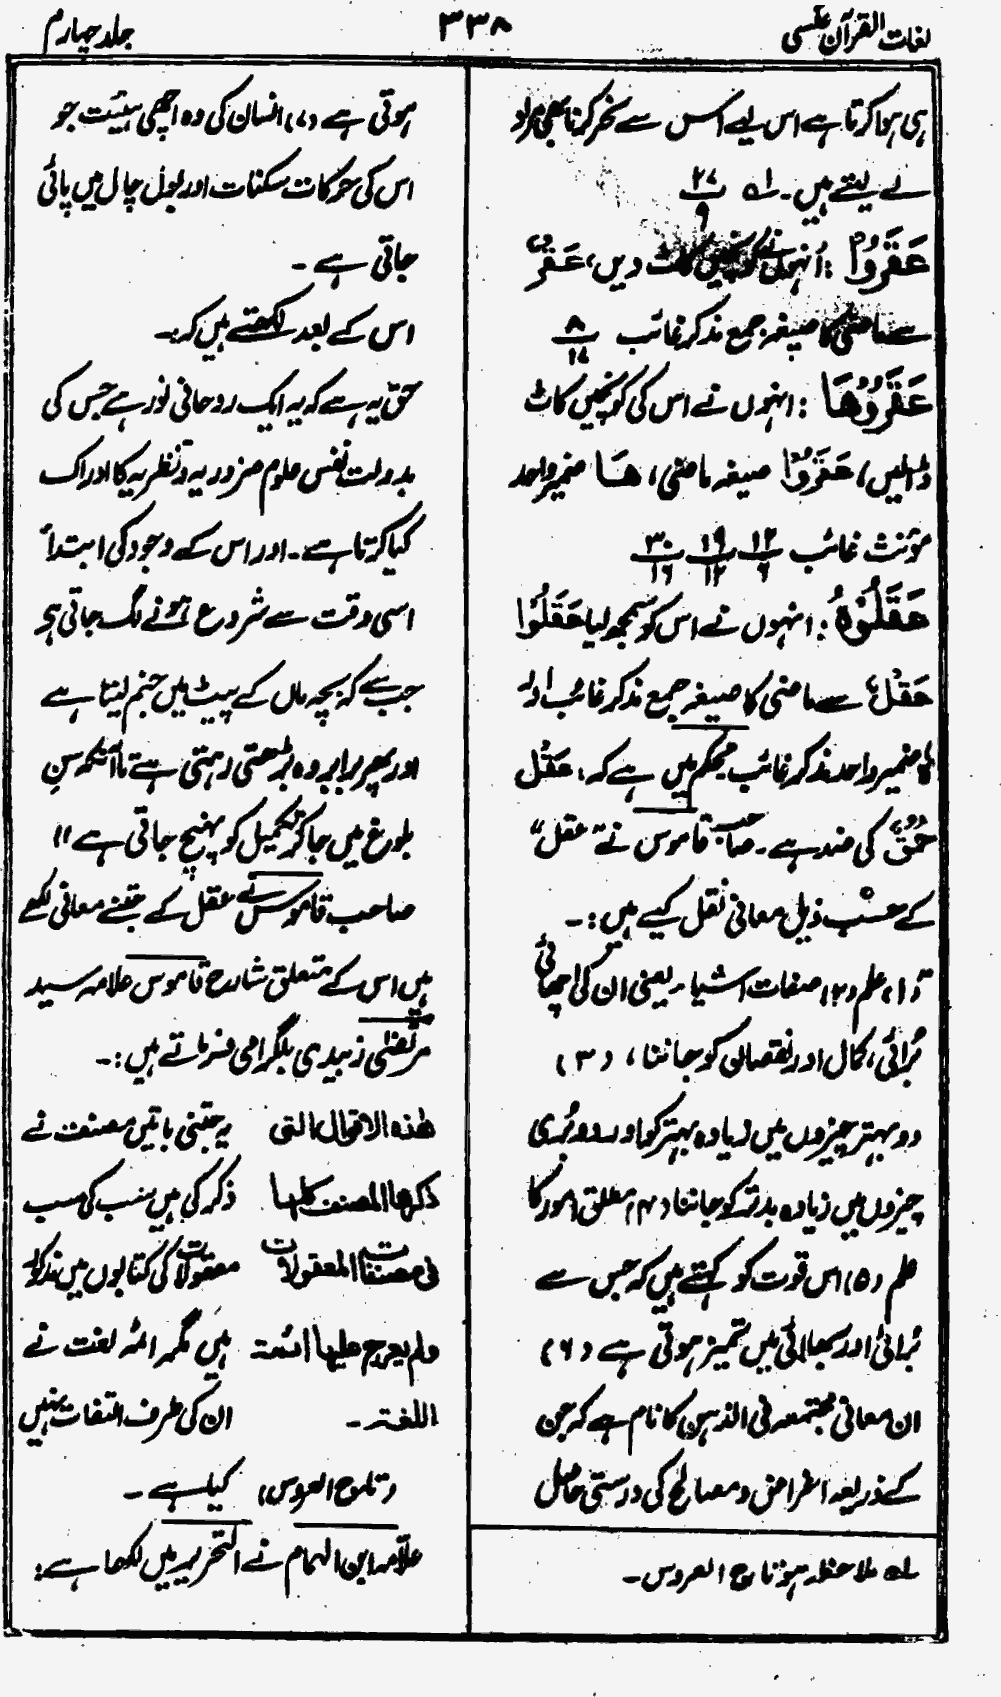 لغات القرآن عکسی
۳۳۸
جلد چہارم
ہی ہوا کرتا ہے اس لیے اس سے نحر کرنا بھی مراد
لے لیتے ہیں۔ لہ ۲۷/۹
عَقَرُوْا : اُنہوں نے کونچیں کاٹ دیں، عَقْرٌ
سے ماضی کا صیغہ جمع مذکر غائب ۸/۱۷
عَقَرُوْهَا : انہوں نے اس کی کونچیں کاٹ
ڈالیں، عَقَرُوْا صیغہ ماضی، هَا ضمیر واحد
مؤنث غائب ۱۲/۶ ۱۹/۱۲ ۳۰/۱۶
عَقَلُوْهُ : انہوں نے اس کو سمجھ لیا عَقَلُوْا
عَقْلٌ سے ماضی کا صیغہ جمع مذکر غائب اور لہ
کا ضمیر واحد مذکر غائب محکم میں ہے کہ، عَقْل
حُمْقٌ کی ضد ہے۔ صاحب قاموس نے ”عقل“
کے حسب ذیل معانی نقل کیے ہیں :۔
(۱) علم (۲) صفات اشیاء۔ یعنی ان کی اچھائی
بُرائی، کمال اور نقصان کو جاننا، (۳)
دو بہتر چیزوں میں زیادہ بہتر کو اور دو بُری
چیزوں میں زیادہ بدتر کو جاننا (۴) مطلق امور کا
علم (۵) اس قوت کو کہتے ہیں کہ جس سے
بُرائی اور بھلائی میں تمیز ہوتی ہے (۶)
ان معانی مجتمعہ فی الذہن کا نام ہے کہ جن
کے ذریعہ اغراض و مصالح کی درستی حاصل
لہ ملاحظہ ہو تاج العروس۔
ہوتی ہے (۷) انسان کی وہ اچھی ہیئت جو
اس کی حرکات سکنات اور بول چال میں پائی
جاتی ہے۔
اس کے بعد لکھتے ہیں کہ:۔
حق یہ ہے کہ یہ ایک روحانی نور ہے جس کی
بدولت نفس علوم ضروریہ و نظریہ کا ادراک
کیا کرتا ہے۔ اور اس کے وجود کی ابتدأ
اسی وقت سے شروع ہونے لگ جاتی ہے
جب سے کہ بچہ ماں کے پیٹ میں جنم لیتا ہے
اور پھر برابر وہ بڑھتی رہتی ہے تا آنکہ سنِ
بلوغ میں جا کر تکمیل کو پہنچ جاتی ہے"
صاحب قاموس نے عقل کے جتنے معانی لکھے
ہیں اس کے متعلق شارح قاموس علامہ سید
مرتضٰی زبیدی بلگرامی فرماتے ہیں :۔
هٰذه الاقوال التی یہ جتنی باتیں مصنف نے
ذکرھا المصنف کلہا ذکر کی ہیں سب کی سب
فی مصنفات المعقولات معقولات کی کتابوں میں مذکور
ولم یعرج علیہا ائمۃ ہیں مگر ائمہ لغت نے
اللغۃ۔ ان کی طرف التفات نہیں
(تاج العروس) کیا ہے۔
علامہ ابن الہمام نے التحریر میں لکھا ہے: